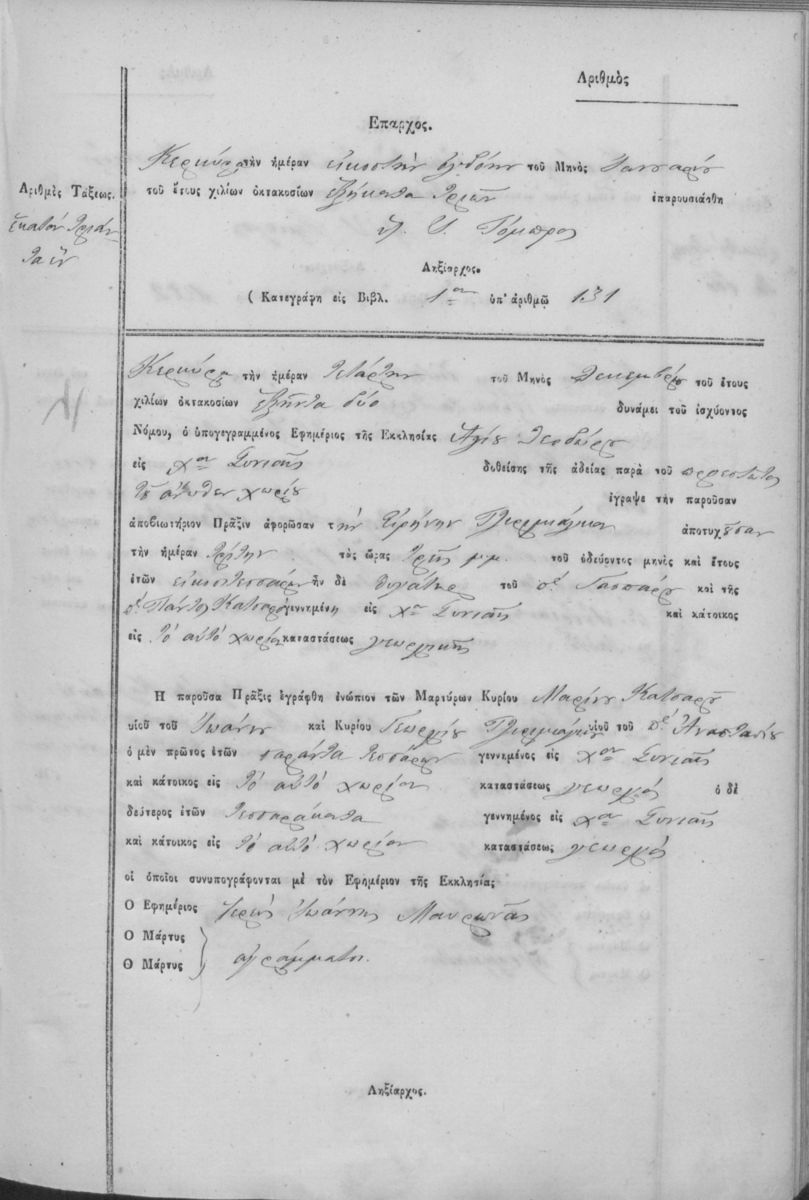 Αριθμὸς
Επαρχος.
Κερκύρα τὴν ἡμέραν εἰκοστὴν ὀγδόην τοῦ Μηνὸς Ἰανουαρίου
Αριθμὸς Τάξεως. τοῦ ἔτους χιλίων ὀκτακοσίων ἑξήκοντα τριῶν ἐπαρουσιάσθη
ἑκατὸν τριάν-
τα ἓν
Ληξίαρχος.
( Κατεγράφη εἰς Βιβλ. 1ον ὑπ' ἀριθμῷ 131
Κερκύρα τὴν ἡμέραν τετάρτην τοῦ Μηνὸς Δεκεμβρίου τοῦ ἔτους
χιλίων ὀκτακοσίων ἑξῆντα δύο δυνάμει τοῦ ἰσχύοντος
Νόμου, ὁ ὑπογεγραμμένος Εφημέριος τῆς Εκκλησίας Ἁγίου
εἰς χον Συνιαῖς δοθείσης τῆς ἀδείας παρὰ τοῦ προεστῶτος
τοῦ ἄνωθεν χωρίου ἔγραψε τὴν παροῦσαν
ἀποβιωτήριον Πρᾶξιν ἀφορῶσαν τὴν Εἰρήνην ἀποτυχοῦσαν
τὴν ἡμέραν τρίτην τὸς ὥρας τρεῖς μ.μ. τοῦ ὁδεύοντος μηνὸς καὶ ἔτους
ἐτῶν εἰκοστεσσάρων ἦν δὲ θυγάτηρ τοῦ ποτὲ Γασπάρου καὶ τῆς
Κατσαροῦ γεννημένη εἰς χον Συνιαῖς καὶ κάτοικος
εἰς τὸ αὐτὸ χωρίον καταστάσεως γεωργικῆς
Η παροῦσα Πρᾶξις ἐγράφθη ἐνώπιον τῶν Μαρτύρων Κυρίου Μαρίνου Κατσαροῦ
υἱοῦ τοῦ Ἰωάννου καὶ Κυρίου Γεωργίου υἱοῦ τοῦ ποτὲ Ἀναστασίου
ὁ μὲν πρῶτος ἐτῶν σαράντα τεσσάρων γεννημένος εἰς χον Συνιαῖς
καὶ κάτοικος εἰς τὸ αὐτὸ χωρίον καταστάσεως γεωργός ὁ δὲ
δεύτερος ἐτῶν τεσσαράκοντα γεννημένος εἰς χον Συνιαῖς
καὶ κάτοικος εἰς τὸ αὐτὸ χωρίον καταστάσεως γεωργός
οἱ ὁποῖοι συνυπογράφονται μὲ τὸν Εφημέριον τῆς Εκκλησίας
Ο Εφημέριος Ἱερεὺς Ἰωάννης Μαυρωνᾶς
Ο Μάρτυς
Θ Μάρτυς ἀγράμματοι.
Ληξίαρχος.